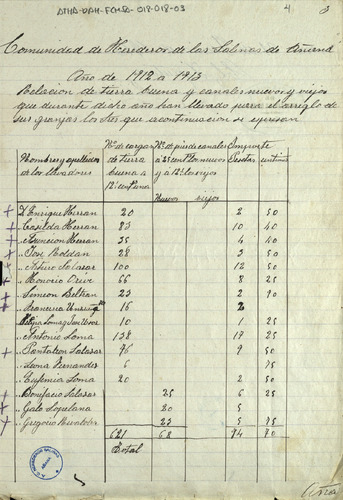 ATHA-DAH-FCHSA-018-018-03
4 3
Comunidad de Herederos de las Salinas de Añana
Año de 1912 a 1913
Relacion de tierra buena y canales nuevos y viejos
que durante dicho año han llevado para el arreglo de
sus granjas los Sres que a continuacion se espresan
Nombres y apellidos de los llevadores | Nº de cargas de tierra buena a 12 cent una | Nº de pies de canales a 25 cent los nuevos y a 12 los viejos | Importe Pesetas | centimos
Nuevos viejos
D Enrique Herran 20 2 50
Casilda Herran 83 10 40
Asuncion Herran 35 4 40
Jose Roldan 28 3 50
Arturo Salazar 100 12 50
Honorio 66 8 25
Simeon Beltran 23 2 90
Francisca 16 2
10 1 25
Antonio Loma 138 17 25
Pantaleon Salazar 76 9 50
Fernandez 6 75
Eufemia Loma 20 2 50
Bonifacio Salazar 25 6 25
Galo 20 5
Gregorio 23 5 75
621 68 94 70
Total